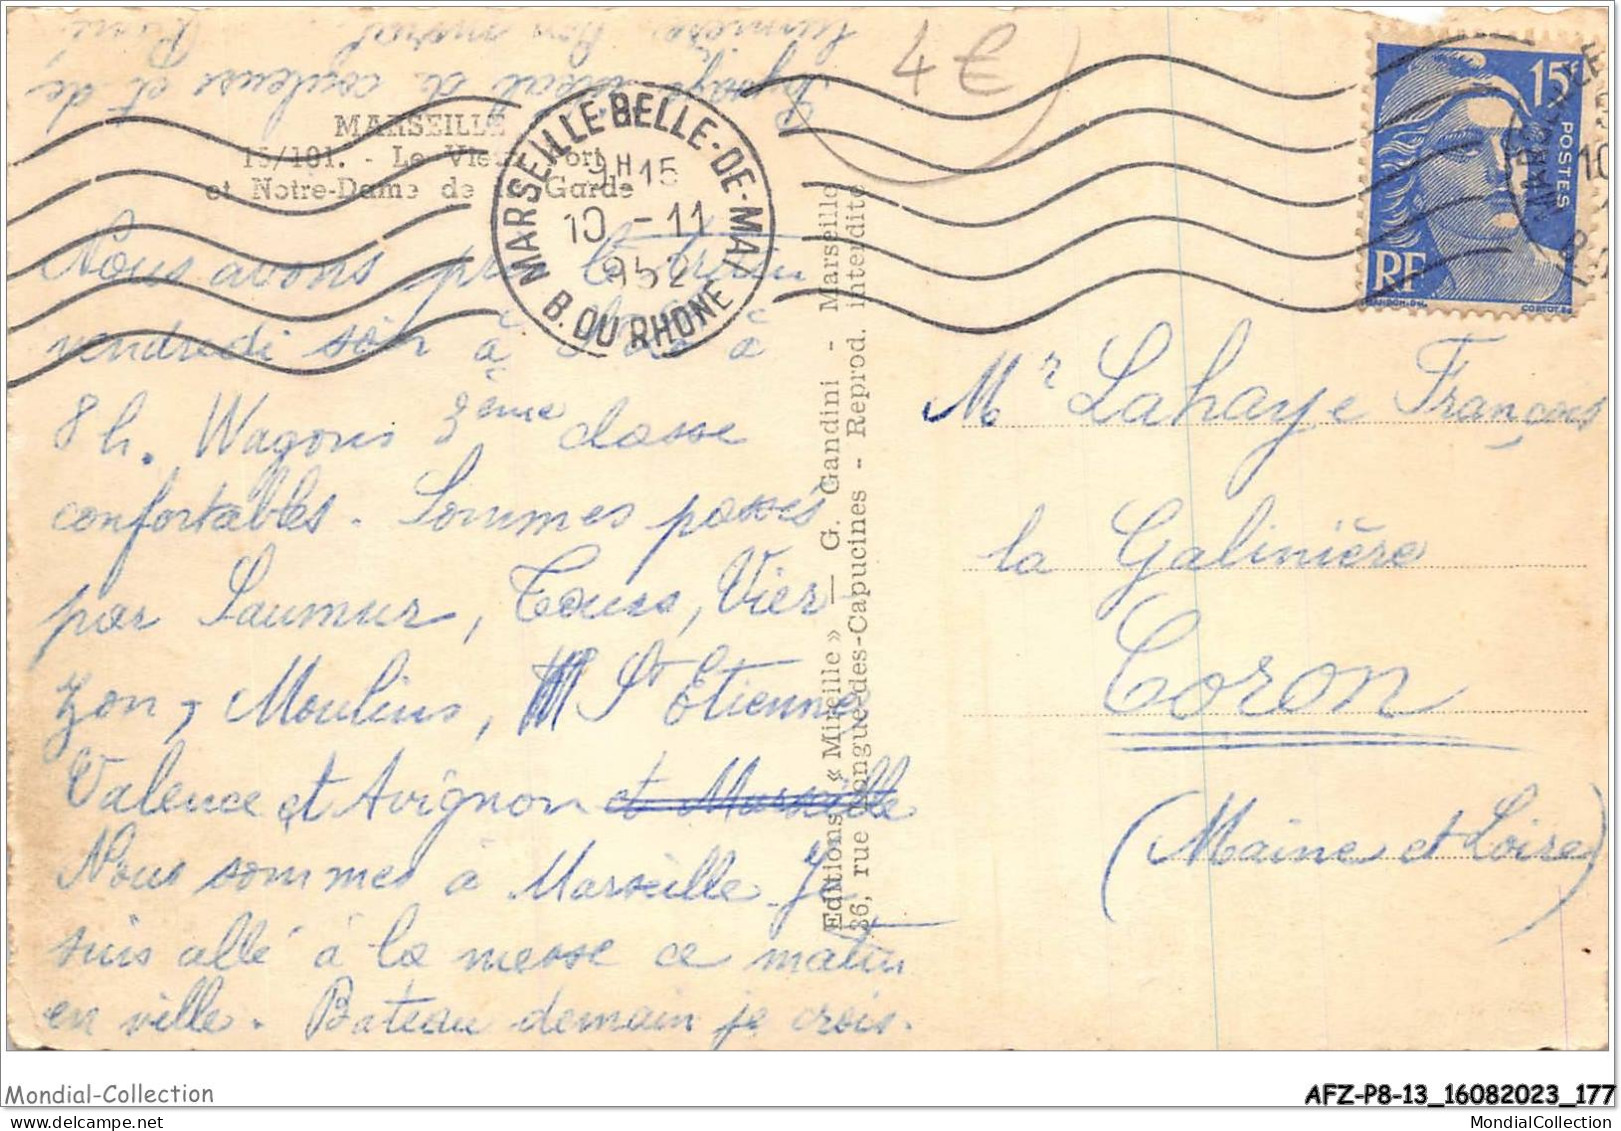 Paysage idéal de couleurs et de
lumière. Bon moral. René
4€
MARSEILLE
15/101. - Le Vieux Port
et Notre-Dame de la Garde
MARSEILLE·BELLE-DE-MAI
9H15
10 - 11
1952
B. DU RHONE
15F
POSTES
RF
Nous avons pris le train
vendredi soir à à
8h. Wagons 3ème classe
confortables. Sommes passés
par Saumur, Tours, Vier
zon, Moulins, St Etienne,
Valence et Avignon et Marseille
Nous sommes à Marseille. Je
suis allé à la messe ce matin
en ville. Bateau demain je crois.
Editions « Mireille » — G. Gandini - Marseille
36, rue Longue-des-Capucines - Reprod. interdite
Mr Lahaye François
la Galinière
Coron
(Maine et Loire)
Mondial-Collection
AFZ-P8-13_16082023_177
MondialCollection.com